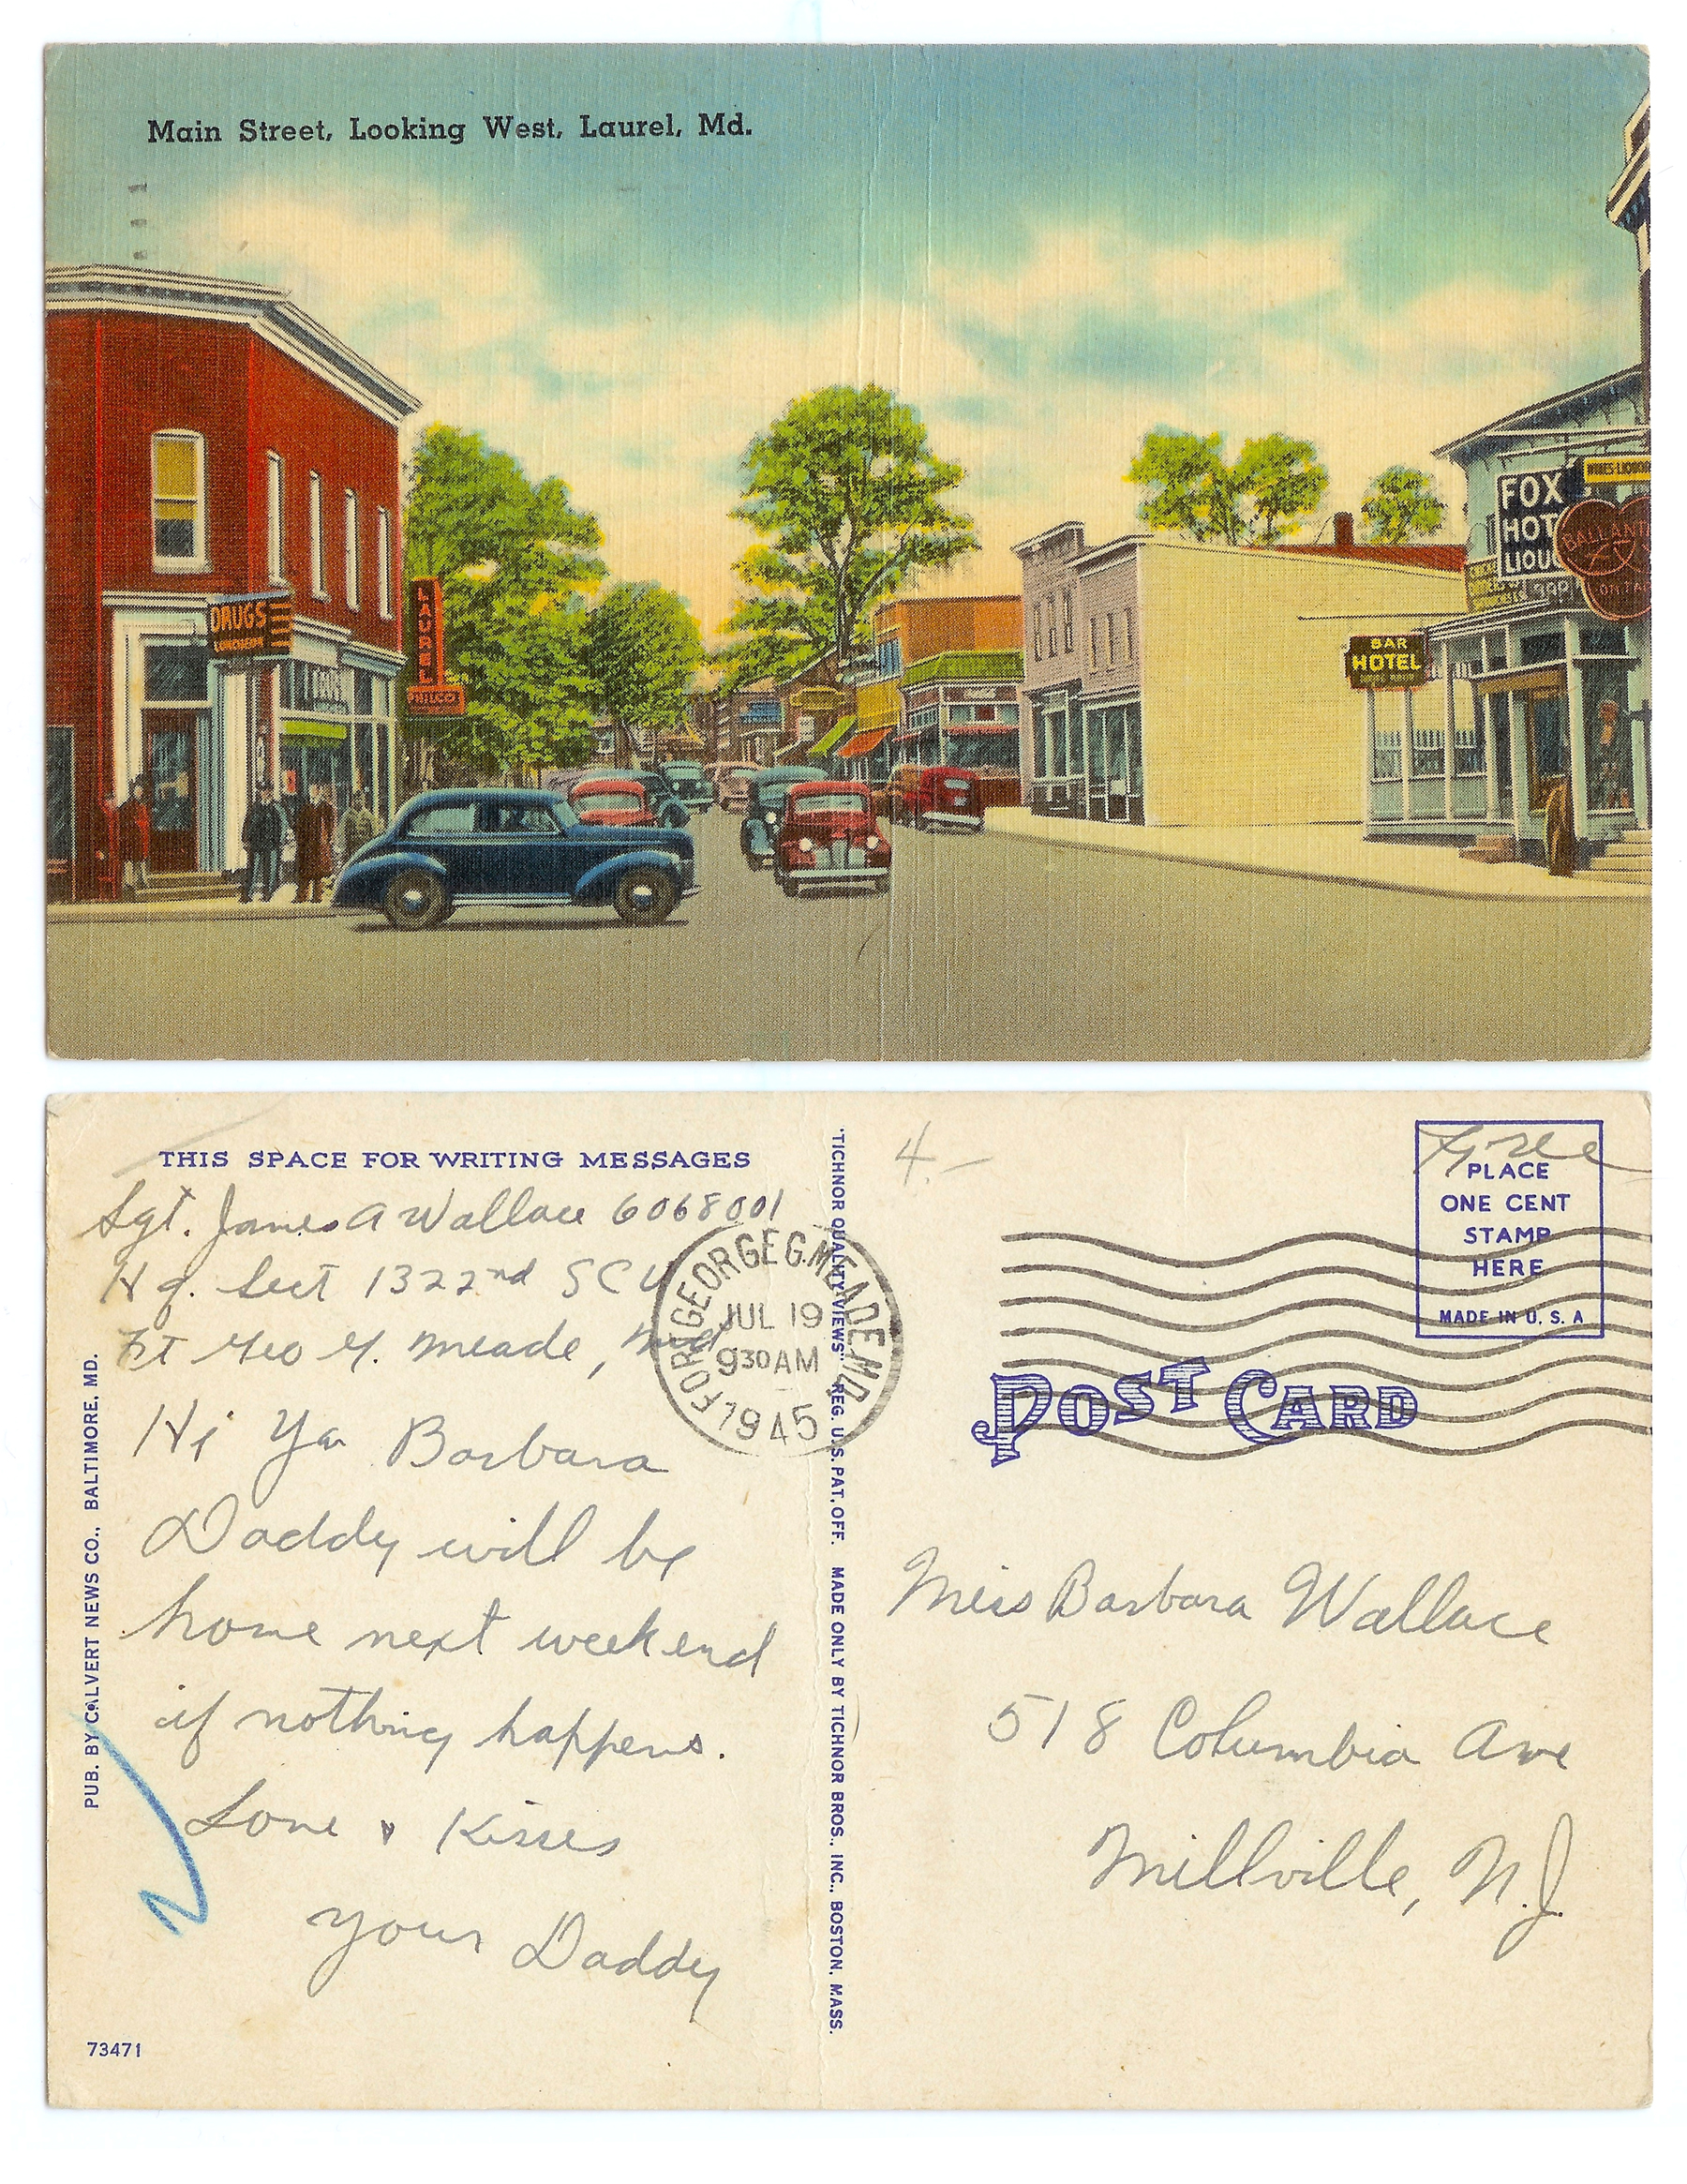 Main Street, Looking West, Laurel, Md.
DRUGS
LUNCHEON
LAUREL
PHILCO
BAR
HOTEL
FOX
HOT
LIQU
WINES-LIQUOR
BALLANT
ON TA
THIS SPACE FOR WRITING MESSAGES
Sgt. James A Wallace 6068001
Hq. Sect 1322nd SCU
Ft Geo G. Meade, Md
Hi Ya Barbara
Daddy will be
home next weekend
if nothing happens.
Love & Kisses
your Daddy
73471
PUB. BY CALVERT NEWS CO., BALTIMORE, MD.
"TICHNOR QUALITY VIEWS" REG. U.S. PAT. OFF. MADE ONLY BY TICHNOR BROS., INC., BOSTON, MASS.
FORT GEORGE G. MEADE MD
JUL 19
930AM
1945
4.-
Free
PLACE
ONE CENT
STAMP
HERE
MADE IN U. S. A
POST CARD
Miss Barbara Wallace
518 Columbia Ave
Millville, N.J.